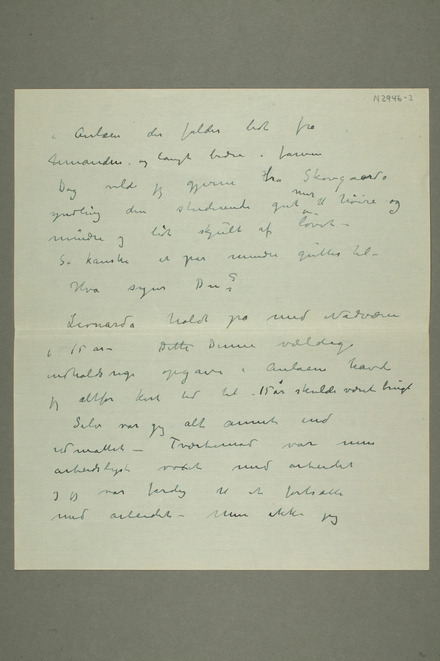 N 2946-2
i Aulaen der falder lidt fra
hinanden. og langt bedre i farven
Dog vilde jeg gjerne ha Skovgaards
yndling den studerende gut mer til høire og
mindre og lidt skjult af løvet –
Så kanske et par mindre gutter til –
Hva synes Du?
Leonardo holdt på med Nadveren
i 15 år – Dette Denne vældige
indholdsrige opgave i Aulaen havde
jeg altfor kort tid til – 15 år skulde været brugt
Selv var jeg alt annet end
udmattet – Tvertimod var min
arbeidslyst vokset med arbeidet
og jeg var færdig til at fortsætte
med arbeidet – Men ikke jeg